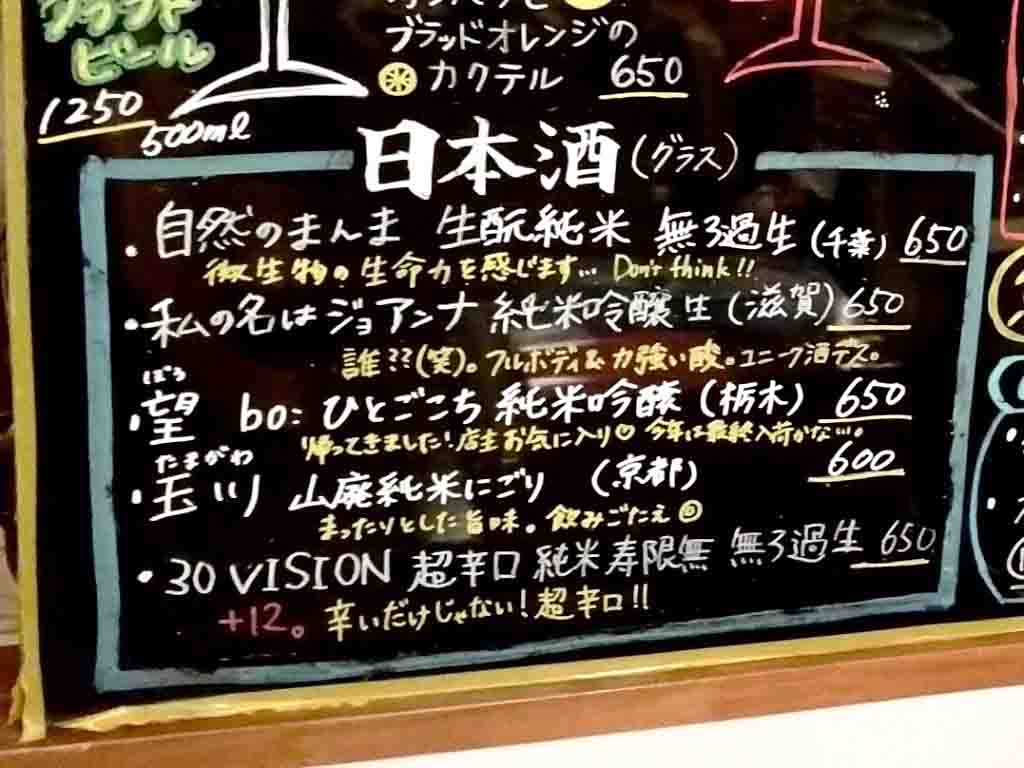 クラフト
ビール
1250
500ml
ブラッドオレンジの
カクテル 650
日本酒(グラス)
・自然のまんま 生酛純米 無ろ過生(千葉) 650
微生物の生命力を感じます… Don't think!!
・私の名はジョアンナ 純米吟醸生(滋賀) 650
誰??(笑)。フルボディ&力強い酸。ユニーク酒デス。
ぼう
・望 bo: ひとごこち 純米吟醸(栃木) 650
帰ってきました!店主お気に入り♡ 今年は最終入荷かな…。
たまがわ
・玉川 山廃純米にごり (京都) 600
まったりとした旨味。飲みごたえ◎
・30 VISION 超辛口 純米寿限無 無ろ過生 650
+12。辛いだけじゃない!超辛口!!